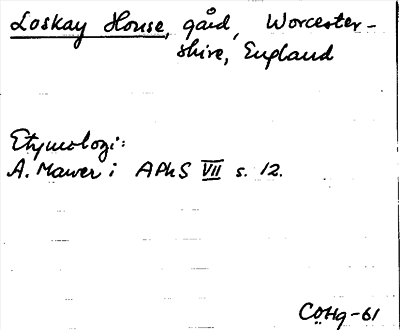 Loskay House, gård, Worcester-
shire, England
Etymologi:
A. Mawer i APhS VII s. 12.
CÖHg-61